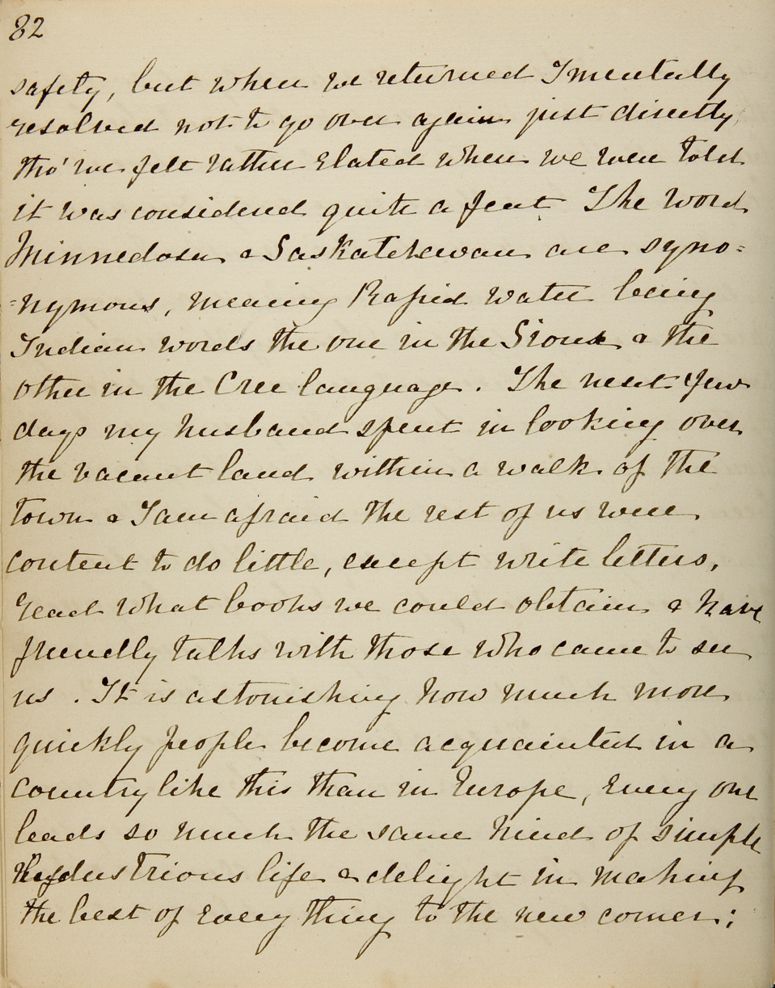 82
safety, but when we returned I mentally
resolved not to go over again just directly,
tho' we felt rather elated when we were told
it was considered quite a feat. The word
Minnedosa & Saskatchewan are syno=
=nymous, meaning Rapid Water being
Indian words the one in the Sioux & the
other in the Cree language. The next few
days my husband spent in looking over
the vacant land within a walk of the
town & I am afraid the rest of us were
content to do little, except write letters,
read what books we could obtain & have
friendly talks with those who came to see
us. It is astonishing how much more
quickly people become acquainted in a
country like this than in Europe, Every one
leads so much the same kind of simple
industrious life & delight in making
the best of every thing to the new comer;